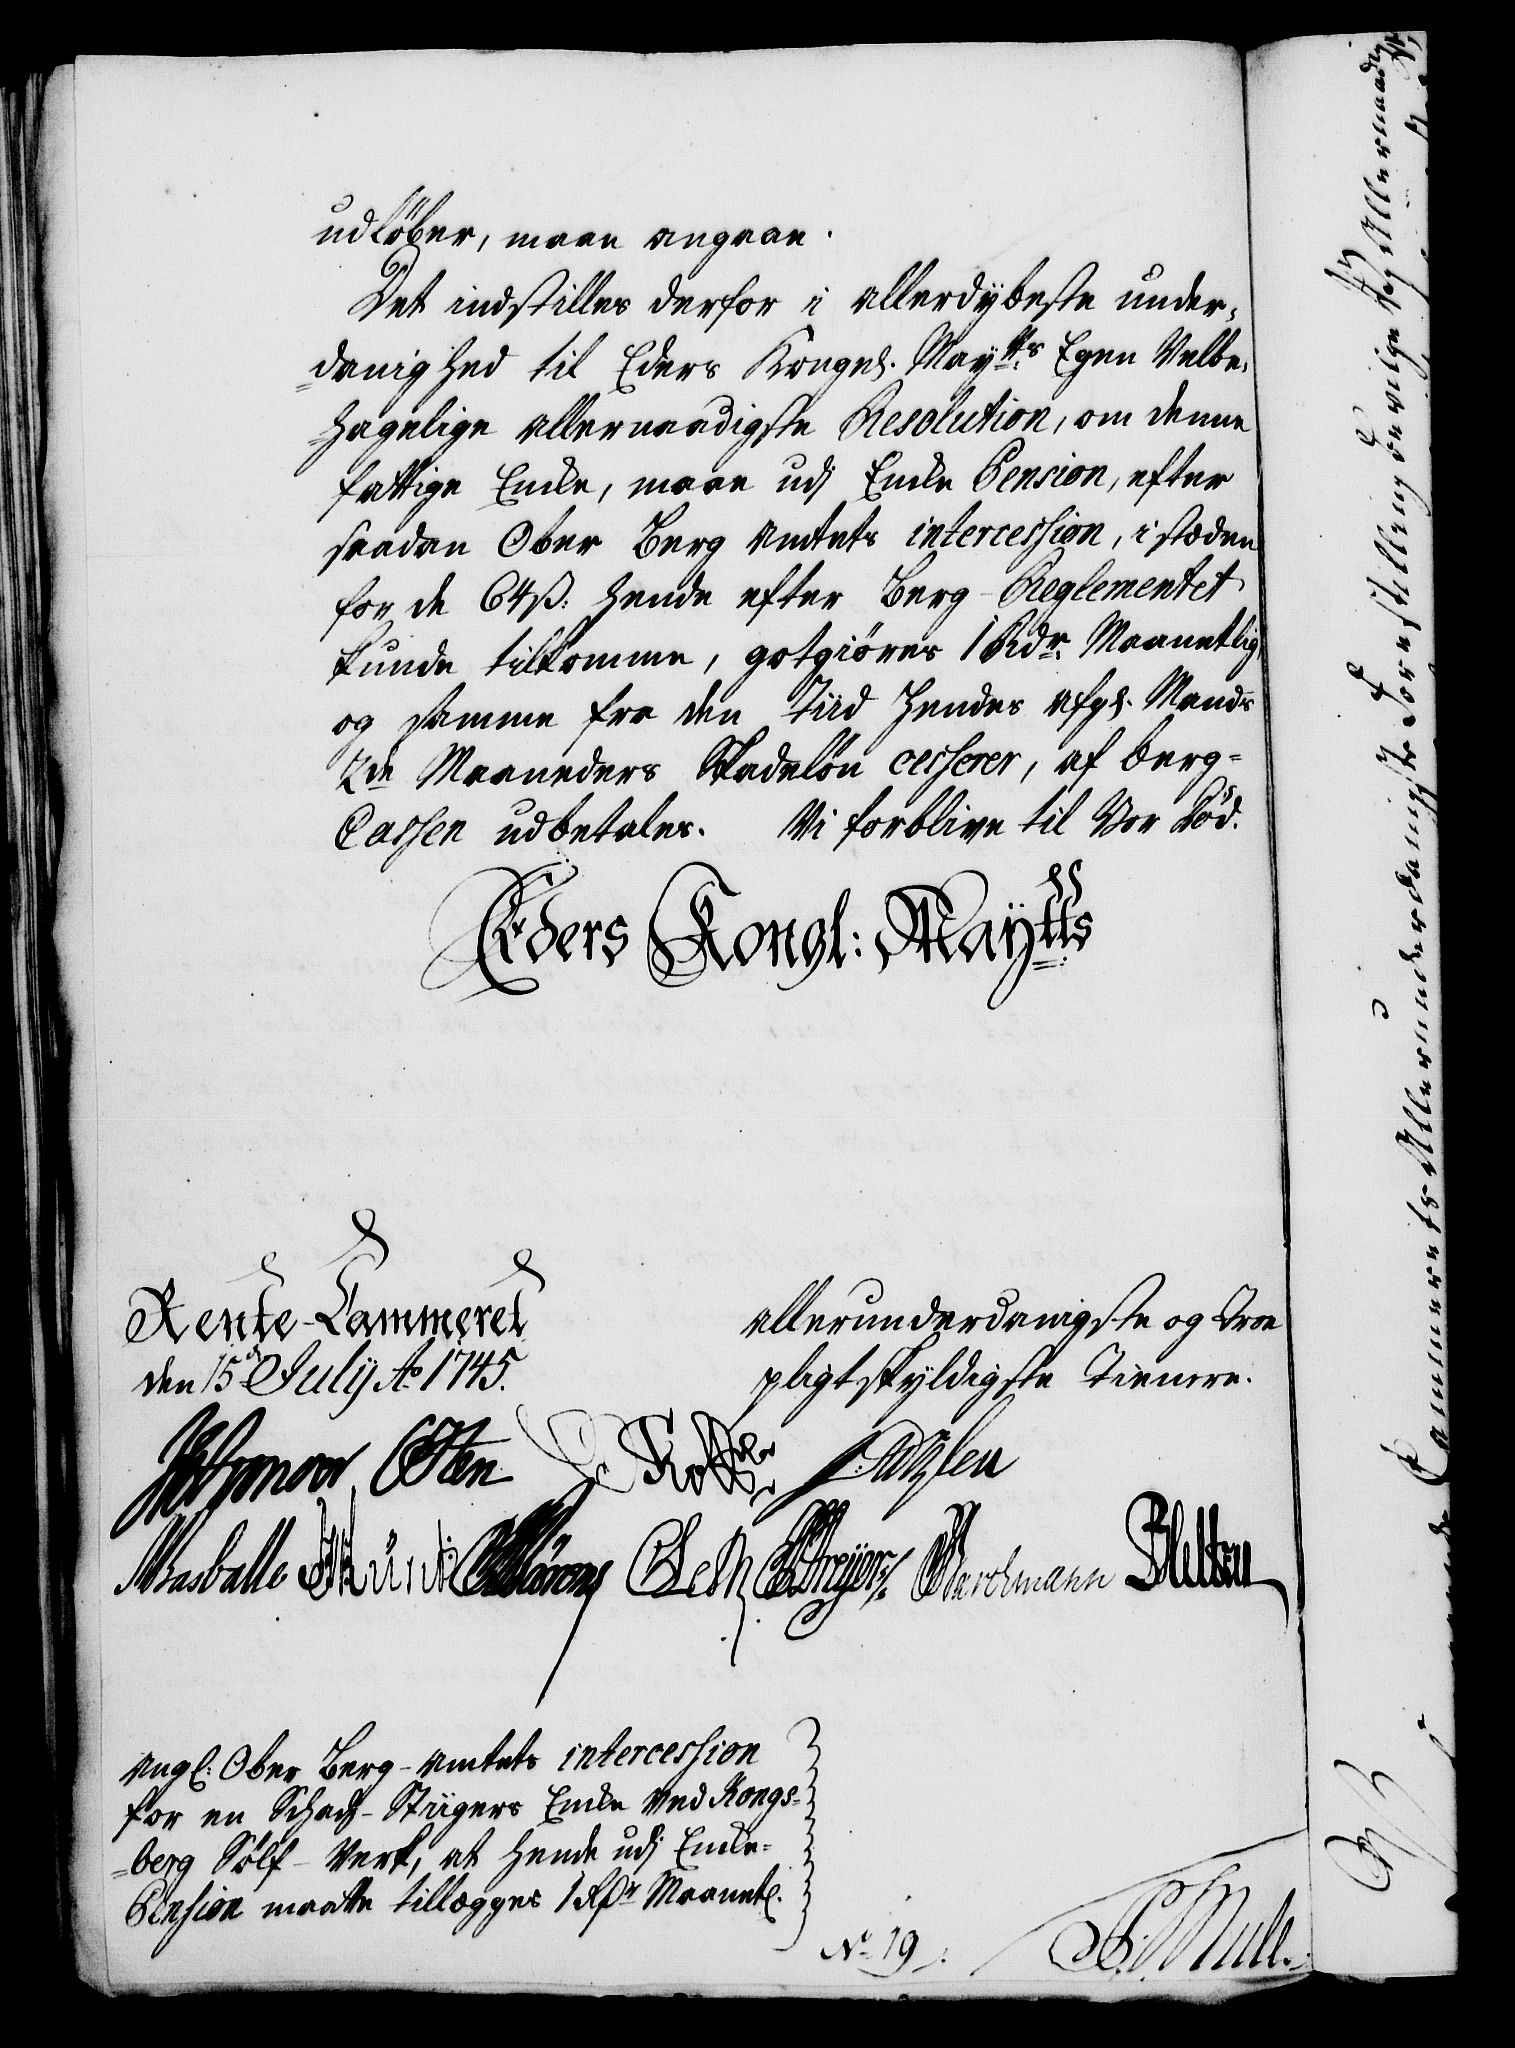 udløber, maae angaae.
Det indstilles derfor i allerdybeste under-
danighed til Eders Kongel. Maytts Egen Velbe-
hagelige allernaadigste Resolution, om denne
fattige Encke, maae udj Encke Pension, efter
saadan Ober Berg Amtets intercession, i stæden
for de 64 ß: hende efter Berg-Reglementet
kunde tilkomme, gotgiøres 1 Rdr. Maanetlig,
og samme fra den Tiid hendes afgl. Mands
2de Maaneders Skadeløn cesserer, af berg-
Cassen udbetales. Vi forblive til Vor Død.
Eders Kongl: Maÿtts
Rente-Cammeret
den 15de Julÿ Ao 1745.
allerunderdanigste og Troe
pligtskyldigste Tienere.
Holstein
Masballe
Barchmann
angl: Ober Berg-amtets intercession
for en Schacht-Stiigers Encke ved Kongs-
berg Sølf-Verk, at hende udj Encke-
Pension maatte tillægges 1 Rdr Maanetl.
No 19.
Cammerets Allerunderdanigste Forestilling